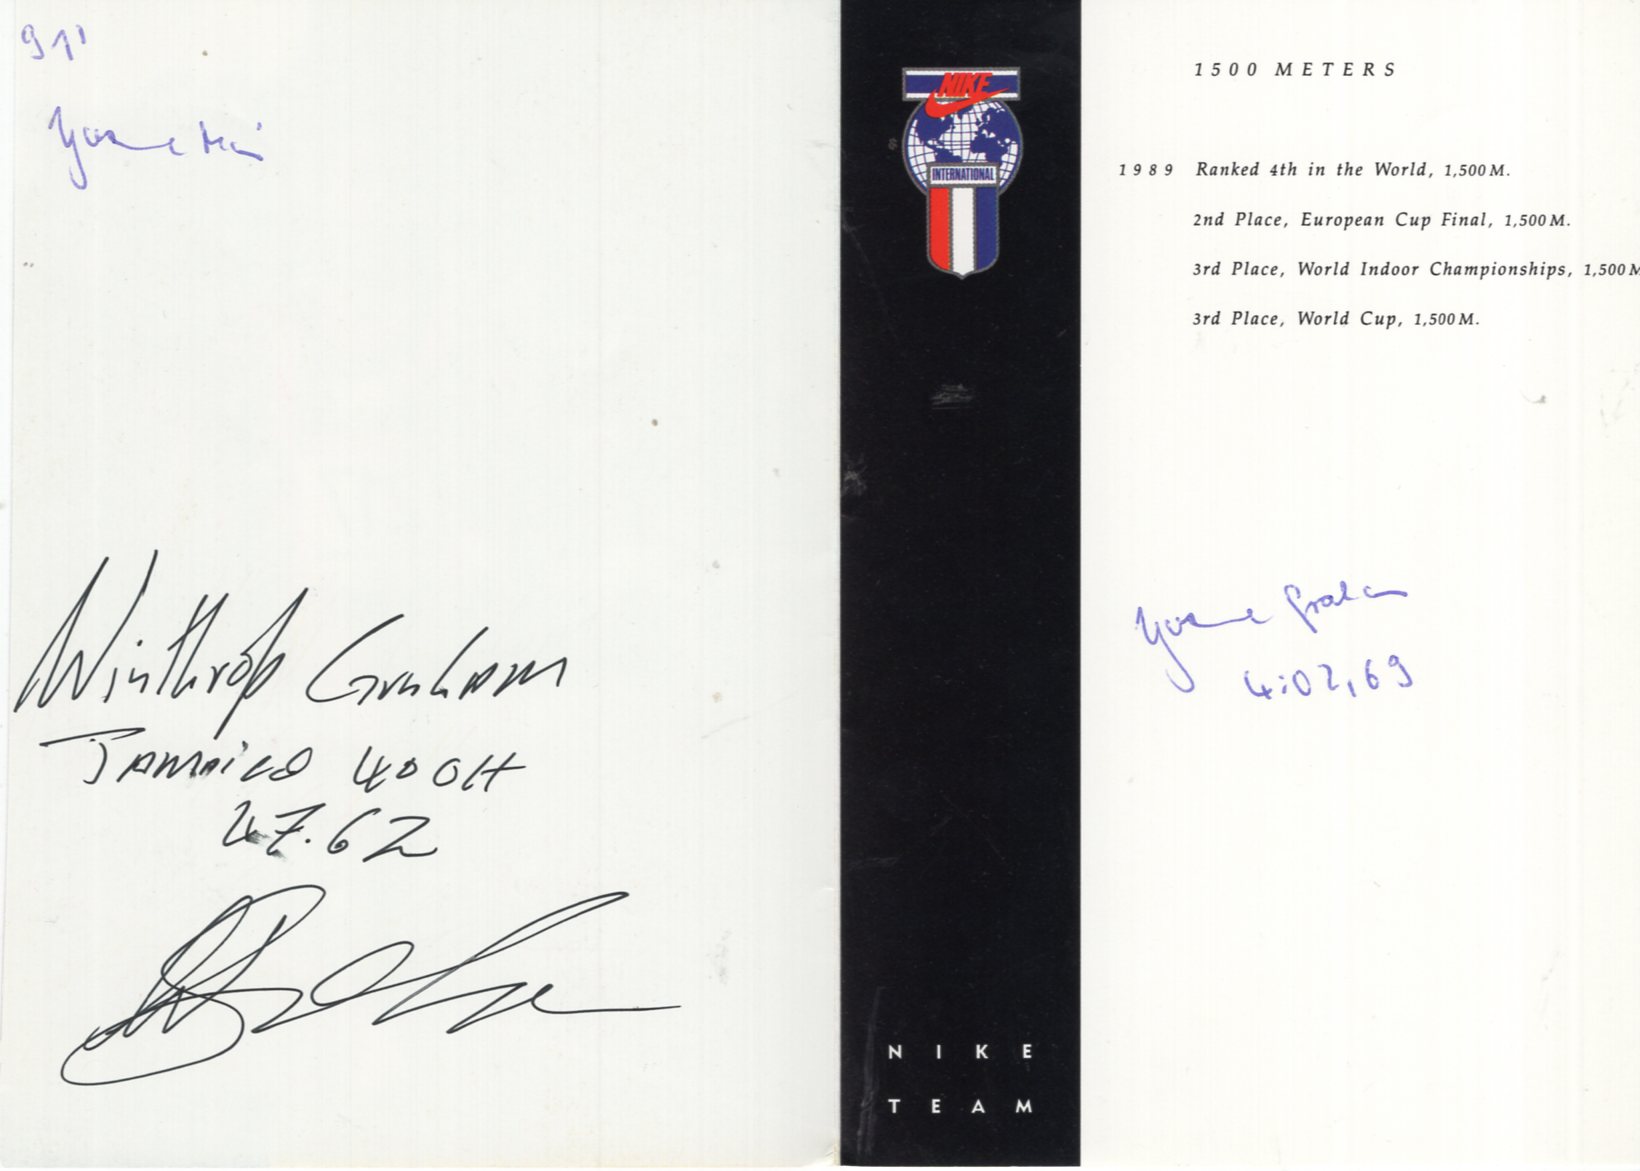 91'
Yvonne Mai
Winthrop Graham
Jamaica 400H
47.62
NIKE
INTERNATIONAL
NIKE
TEAM
1500 METERS
1989 Ranked 4th in the World, 1,500M.
2nd Place, European Cup Final, 1,500M.
3rd Place, World Indoor Championships, 1,500M
3rd Place, World Cup, 1,500M.
Yvonne Graham
4:02,69